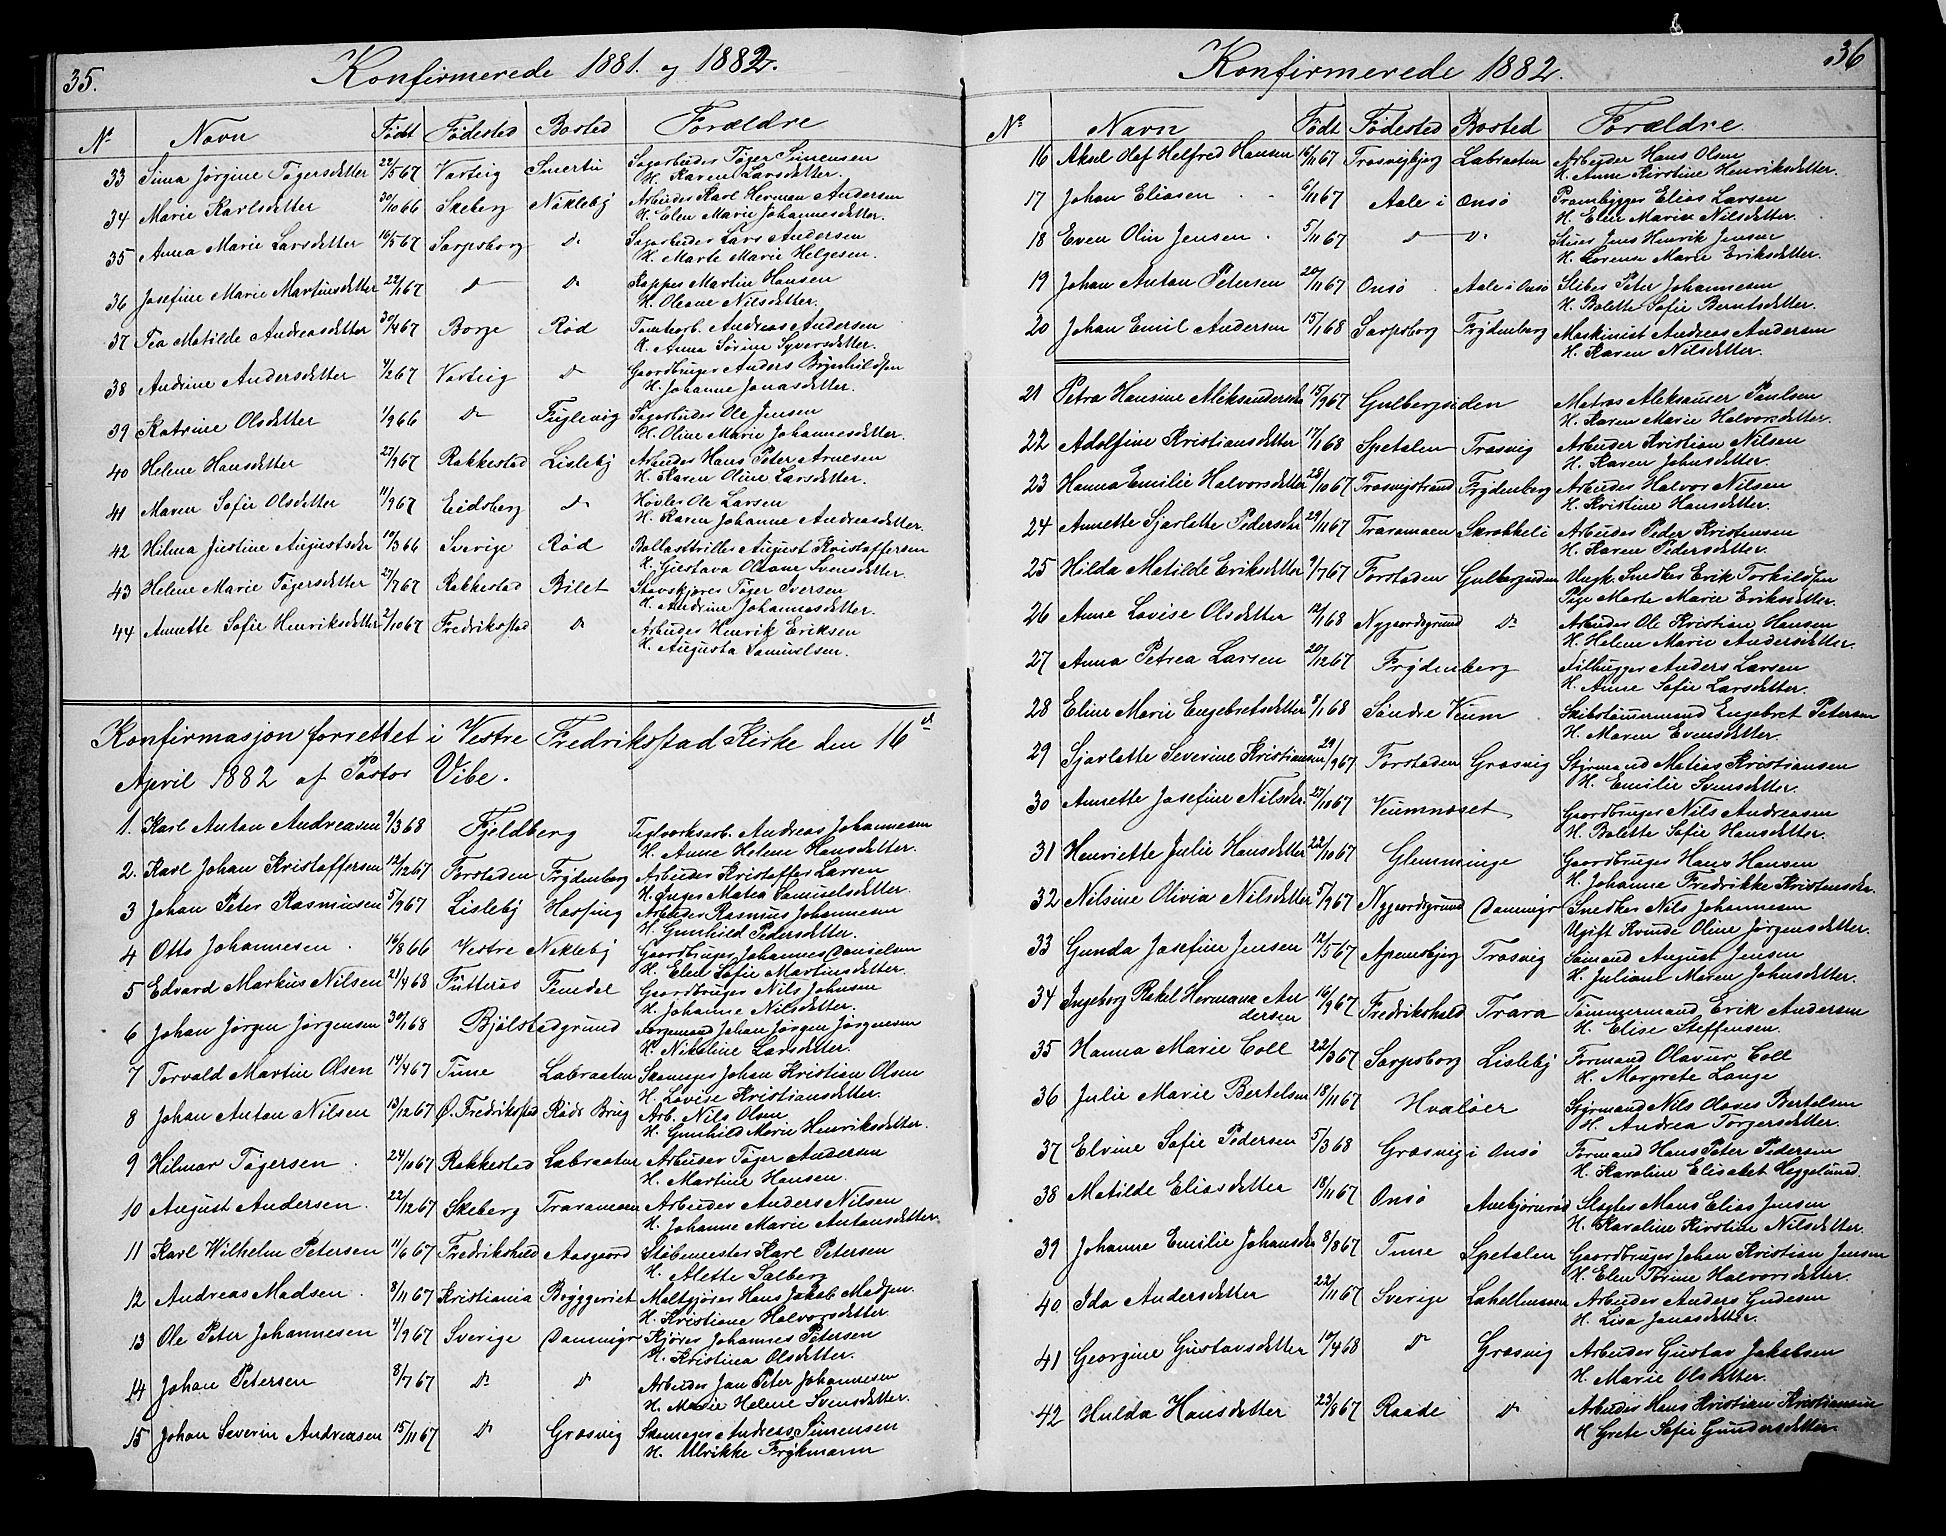 35.
Konfirmerede 1881. og 1882.
No Navn Født Fødested Bosted Forældre
33 Sina Jørgine Tøgersdetter 22/5 67 Varteig Smertu Sagarbeider Tøger Simensen
H. Karen Larsdetter.
34 Marie Karlsdetter 30/10 66 Skeberg Nøklebÿ Arbeider Karl Herman Andersen
H. Elen Marie Johannesdetter.
35 Anna Marie Larsdetter 16/5 67 Sarpsborg do Sagarbeider Lars Andersen
H. Marte Marie Helgesen.
36 Josefine Marie Martinsdetter 22/11 67 do do Kopper Martin Hansen
H. Oleane Nilsdetter.
37 Tea Matilde Andreasdetter 30/4 67 Borge Rød Tomtearb. Andreas Andersen
H. Anna Sørine Syversdetter.
38 Andrine Andersdetter 4/2 67 Varteig do Gaardbruger Anders Brÿnhildsen
H. Johanne Jonasdetter.
39 Katrine Olsdetter 1/9 66 do Fuglevig Sagarbeider Ole Jensen
H. Oline Marie Johannesdetter.
40 Helene Hansdetter 27/9 67 Rakkestad Lislebÿ Arbeider Hans Peter Arnesen
H. Karen Oline Larsdetter.
41 Maren Sofie Olsdetter 11/9 67 Eidsberg do Høvler Ole Larsen
H. Karen Johanne Andreasdetter.
42 Hilma Justine Augustsdtr 10/3 66 Sverige Rød Ballasttriller August Kristoffersen
H. Gustava Oleane Svensdetter.
43 Helene Marie Tøgersdetter 27/7 67 Rakkestad Bilet Stavskjører Tøger Iversen
H. Andrine Johannesdetter.
44 Annette Sofie Henriksdetter 21/10 67 Fredrikstad do Arbeider Henrik Eriksen
H. Augusta Samuelsen.
Konfirmasjon forrettet i Vestre Fredrikstad Kirke den 16d
April 1882 af Pastor Vibe.
1. Karl Anton Andreasen 9/3 68 Fjeldberg Teglværksarb. Andreas Johannesen
H. Anne Helene Hansdetter.
2. Karl Johan Kristoffersen 12/12 67 Forstaden Frÿdenberg Arbeider Kristoffer Larsen
H. Inger Matea Samuelsdetter.
3 Johan Peter Rasmusen 5/9 67 Lislebÿ Hassing Arbeider Rasmus Johannesen
H. Gunhild Pedersdetter.
4 Otto Johannesen. 14/8 66 Vestre Neklebÿ Gaardbruger Johannes Danielsen
H. Elen Sofie Martinsdetter.
5 Edvard Markus Nilsen 21/4 68 Futterøs Femdal Gaardbruger Nils Johnsen
H. Johanne Nilsdetter.
6 Johan Jørgen Jørgensen 30/1 68 Bjølstadgrund Formand Johan Jørgen Jørgensen
H. Nikoline Larsdetter.
7 Torvald Martin Olsen 14/4 67 Tune Labraaten Skomager Johan Kristian Olsen
H. Lovise Kristiansdetter.
8 Johan Anton Nilsen 13/12 67 Ø. Fredrikstad Røds Brug Arb. Nils Olsen
H. Gunhild Marie Henriksdetter.
9 Hilmar Tøgersen. 24/10 67 Rakkestad Labraaten Arbeider Tøger Andersen
H. Martine Hansen.
10 August Andersen. 22/12 67 Skeberg Traramoen Arbeider Anders Nilsen
H. Johanne Marie Antonsdetter.
11 Karl Wilhelm Petersen 11/6 67 Fredrikshald Aasgaard Støbemester Karl Petersen
H. Alette Solberg
12 Andreas Madsen. 8/11 67 Kristiania Brÿggeriet Maltgjører Hans Jakob Madsen.
H. Kristiane Halvorsdetter.
13 Ole Peter Johannesen 4/9 67 Sverige Dammigr Kjører Johannes Petersen
H. Kristina Olsdetter.
14 Johan Petersen 8/7 67 do do Arbeider Jan Peter Johannesen
H. Marie Helene Svensdetter.
15 Johan Severin Andreasen 15/11 67 do Græsvig Skomager Andreas Simensen
H. Ulrikke Frÿkmann
36
Konfirmerede 1882.
No Navn Født Fødested Bosted Forældre.
16 Aksel Olaf Helfred Hansen 16/11 67 Trosvigbjerg Labraaten Arbeider Hans Olsen
H. Anne Kirstine Henriksdetter.
17 Johan Eliasen 6/11 67 Aale i Onsø Prambygger Elias Larsen
H. Elen Maria Nilsdetter.
18 Even Olin Jensen. 5/11 67 do do Stuer Jens Henrik Jensen
H. Lorense Marie Eriksdetter.
19 Johan Anton Petersen 20/11 67 Onsø Aale i Onsø Sliber Peter Johannesen
H. Bolette Sofie Berntsdetter.
20 Johan Emil Andersen 15/1 68 Sarpsborg Frÿdenberg Maskinist Andreas Andersen
H. Karen Nilsdetter.
21 Petra Hansine Aleksandersd 15/9 67 Gulbergsiden Matros Aleksander Paulsen
H. Karen Marie Halvorsdetter.
22 Adolfine Kristiansdetter 17/1 68 Spetalen Trosvig Arbeider Kristian Nilsen
H. Karen Johnsdetter.
23 Hanna Emilie Halvorsdetter 28/10 67 Trosvigstrand Frÿdenberg Arbeider Halvor Nilsen
H. Kristine Hansdetter.
24 Annette Sjarlotte Pedersdtr 29/11 67 Traramoen Skrokkeli Arbeider Peder Kristensen
H. Karen Pedersdetter.
25 Hilda Matilde Eriksdetter 9/7 67 Forstaden Gulbergsiden Ungk. Snedker Erik Torkildsen
Pige Marte Marie Eriksdetter
26 Anne Lovise Olsdetter 12/1 68 Nygaardsgrund do Arbeider Ole Kristian Hansen
H. Helene Marie Andersdetter.
27 Anna Petrea Larsen 20/12 67 Frÿdenberg Filhugger Anders Larsen
H. Anne Sofie Larsdetter.
28 Eline Marie Engebretsdetter 8/1 68 Søndre Veum Skibstømermand Engebret Petersen
H. Maren Evensdetter.
29 Sjarlotte Severine Kristiansen 29/9 67 Forstaden Græsvig Styrmand Matias Kristiansen
H. Emilie Svensdetter.
30 Annette Josefine Nilsdtr. 27/10 67 Veumnæset Gaardbruger Nils Andreasen
H. Bolette Sofie Hansdetter.
31 Henriette Julie Hansdetter 22/10 67 Glemminge Gaardbruger Hans Hansen
H. Johanne Fredrikke Kristensdtr.
32 Nilsine Olivia Nilsdetter 5/9 67 Nygaardsgrund Dammigr Snedker Nils Johannesen
Ugift Kvinde Oline Jørgensdetter.
33 Gunda Josefine Jensen 12/5 67 Apenesbjerg Trosvig Sømand August Jensen
H. Juliane Maren Johnsdetter.
34 Ingeborg Rakel Hermana An
dersen 16/9 67 Fredrikshald Trara Tømmermand Erik Andersen
H. Elise Steffensen.
35 Hanna Marie Coll 22/3 67 Sarpsborg Lislebÿ Formand Olavur Coll
H. Margrete Lange
36 Julie Marie Bertelsen 18/11 67 Hvaløer Styrmand Nils Olaves Bertelsen
H. Andrea Torgersdetter.
37 Elvine Sofie Pedersen 5/3 68 Græsvig i Onsø Formand Hans Peter Pedersen
H. Karoline Elisabet Heggelund.
38 Matilde Eliasdetter 18/11 67 Onsø Ambjørnrød Slagter Mons Elias Jensen
H. Karoline Kirstine Nilsdetter
39 Johanne Emilie Johansdtr 8/8 67 Tune Spetalen Gaardbruger Johan Kristian Jensen
H. Elen Torine Halvorsdetter.
40 Ida Andersdetter 22/11 67 Sverige Lahellmoen Arbeider Anders Gudesen
H. Lisa Jonasdetter.
41 Georgine Gustavsdetter 10/4 68 do Græsvig Arbeider Gustav Jakobsen
H. Marie Olsdetter.
42 Hulda Hansdetter 23/8 67 Raade do Arbeider Hans Kristian Kristiansen
H Grete Sofie Gundersdetter.